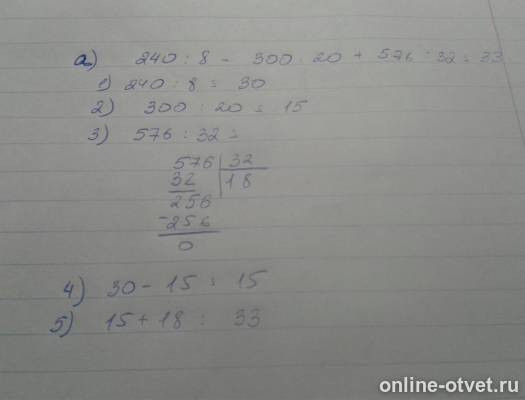 а) 240 : 8 - 300 : 20 + 576 : 32 = 33
1) 240 : 8 = 30
2) 300 : 20 = 15
3) 576 : 32 =
576 32
32 18
256
-256
0
4) 30 - 15 = 15
5) 15 + 18 = 33
online-otvet.ru